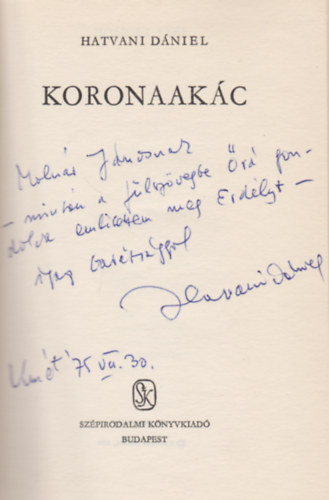 HATVANI DÁNIEL
KORONAAKÁC
Molnár Jánosnak
– miután a fülszövegbe Őrá gon-
dolva említettem meg Erdélyt –
igaz barátsággal
Hatvani Dániel
Kmét '75 VII. 30.
SZK
SZÉPIRODALMI KÖNYVKIADÓ
BUDAPEST